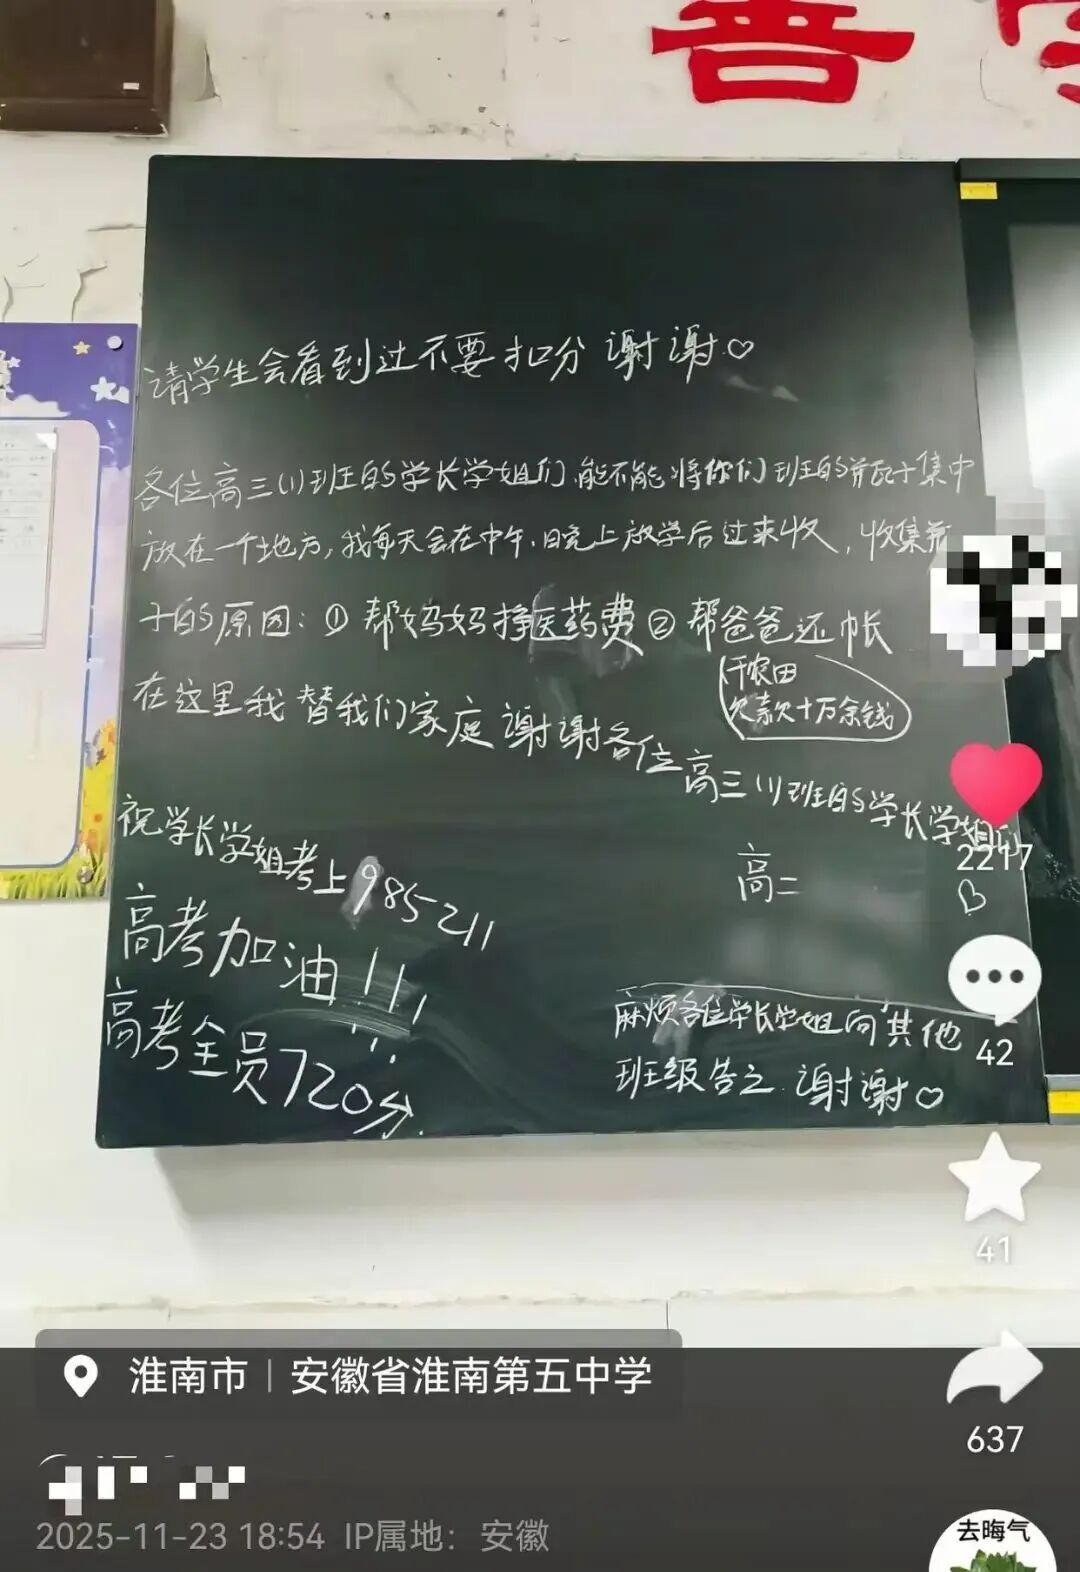 请学生会看到过不要扣分 谢谢♡
各位高三(1)班的学长学姐们,能不能将你们班的瓶子集中
放在一个地方,我每天会在中午、晚上放学后过来收,收集瓶
子的原因:① 帮妈妈挣医药费 ② 帮爸爸还帐
(干农田
欠款十万余钱)
在这里我替我们家庭谢谢各位高三(1)班的学长学姐们
高二
祝学长学姐考上985211
高考加油!!!
高考全员720分.
麻烦各位学长学姐向其他
班级告之.谢谢♡
2217
42
41
637
淮南市|安徽省淮南第五中学
2025-11-23 18:54 IP属地:安徽
去晦气